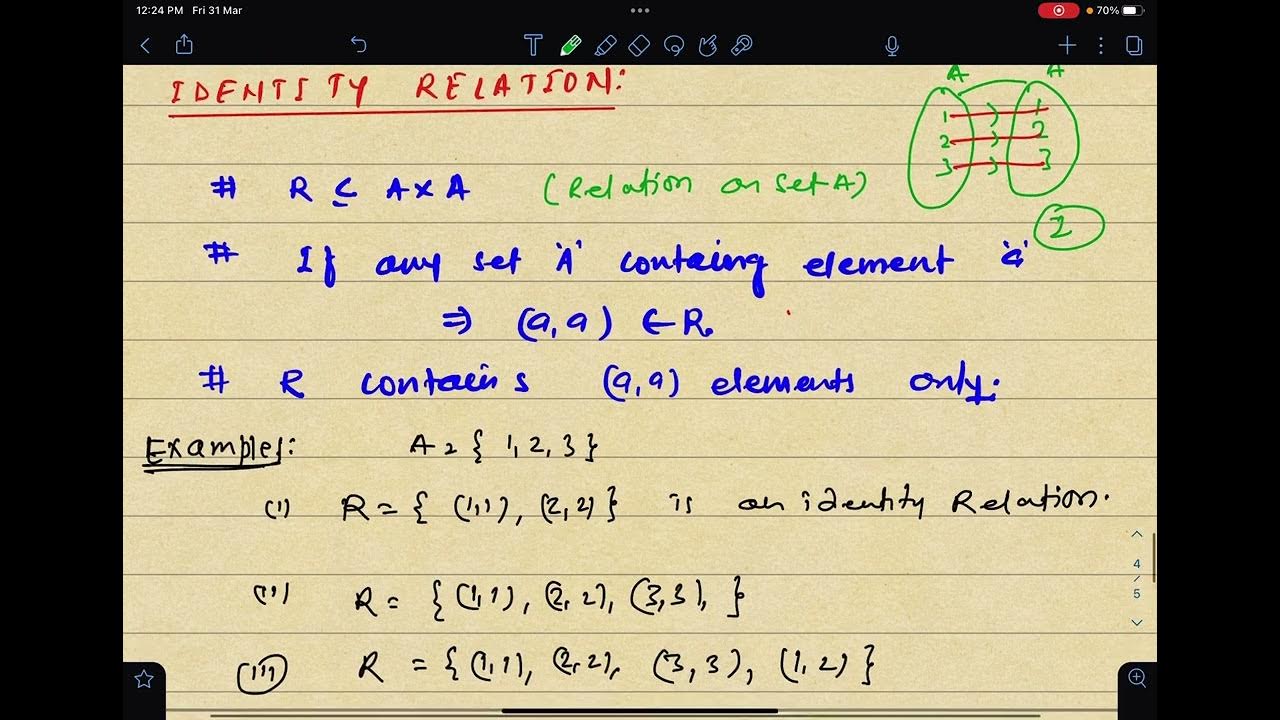 12:24 PM Fri 31 Mar
70%
IDENTITY RELATION:
A A
1 1
2 2
3 3
I
# R ⊆ A×A (Relation on set A)
# If any set 'A' containg element 'a'
⇒ (a, a) ∈ R.
# R contains (a, a) elements only.
Examples: A = { 1, 2, 3 }
(i) R = { (1,1), (2,2) } is an identity Relation.
(ii) R = { (1,1), (2,2), (3,3), }
(iii) R = { (1,1), (2,2), (3,3), (1,2) }
4
/
5